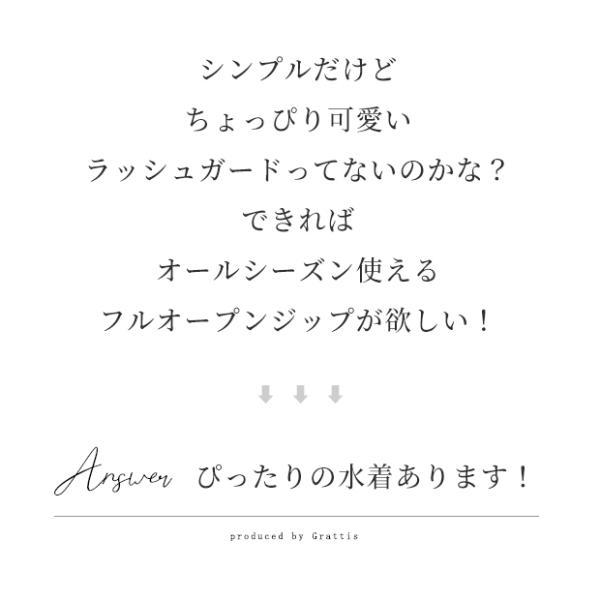 シンプルだけど
ちょっぴり可愛い
ラッシュガードってないのかな？
できれば
オールシーズン使える
フルオープンジップが欲しい！
Answer ぴったりの水着あります！
produced by Grattis